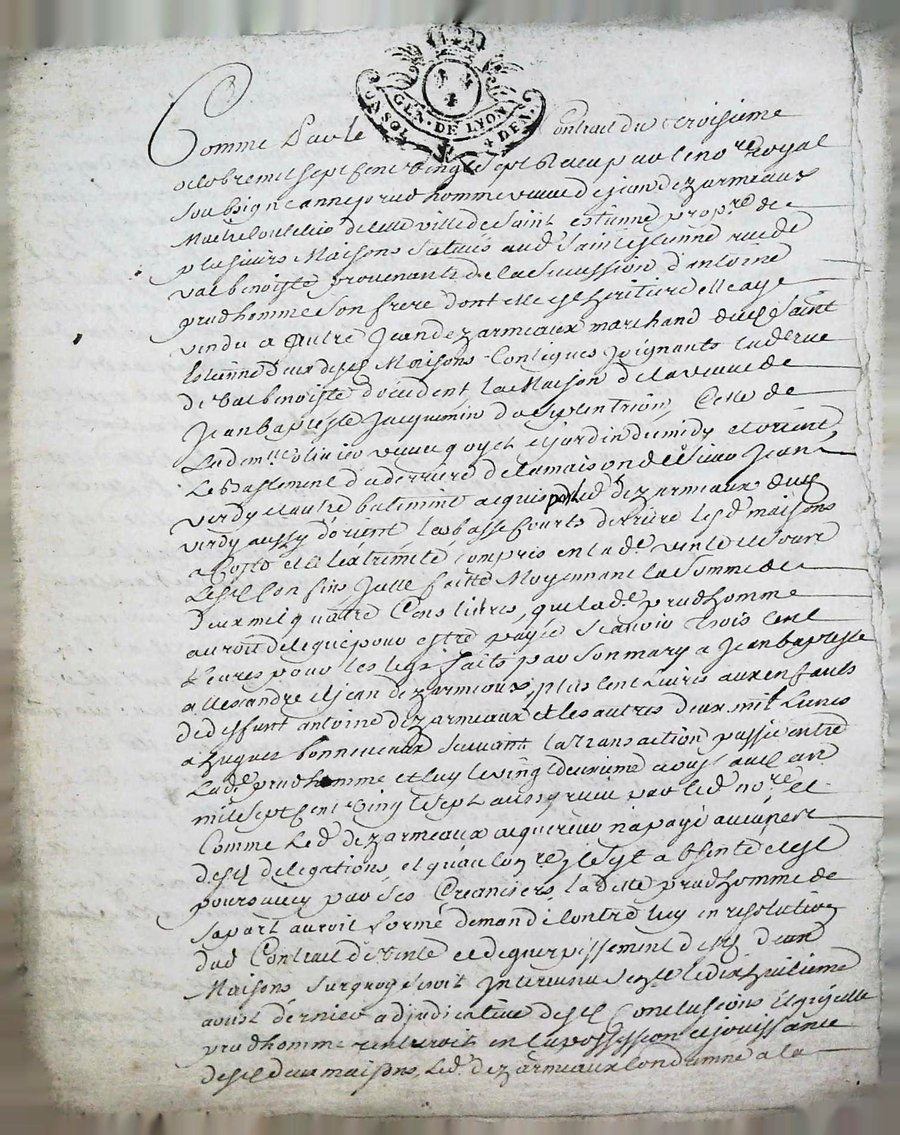 GEN. DE LYON
Comme Par le Contrait du troisieme
octobre mil sept cent vingt sept Receu par le no.re Royal
soubsigné anne prudhomme veuve de jean dezarmeaux
de cette ville de saint estienne prop.re de
plusieurs Maisons scituées aud. saint estienne rue de
valbenoiste provenants de la succession d'antoine
prudhomme son frere dont elle est heritiere elle aye
vendu a autre Jean dezarmeaux marchand dud. saint
Estienne deux desd. Maisons Contigues joignants lad. rue
de valbenoiste d'occident, la Maison de la veuve de
Jean Baptiste Jacquemin de septentrion, Celle de
La dem.lle veuve goyet et jardin de midy et orient
Le Bastiment du derriere de la maison de sieur Jean
verdy et autre batiment acquis par led. dezarmeaux dud.
verdy aussy d'orient les basse Courts derriere lesd. maisons
a Costé et a l'extremité Compris en lad. vente et sous
Lesd. Confins Jcelle faitte Moyennant la somme de
deux mil quatre Cens livres, que lad. prudhomme
auroit deleguée pour estre payée sçavoir trois cent
Livres pour les legs faits par son mary a Jean Baptiste
allexandre et jean dezarmeaux, plus cent Livres aux enfants
de deffunt antoine dezarmeaux et les autres deux mil Livres
a hugues bonnevieux suivant la transaction passée entre
Lad. prudhomme et luy le vingt deuxieme aoust aud. an
mil sept cent vingt sept aussy receue par led. no.re et
Comme Led. dezarmeaux acquereur n'a payé aucunes
desd. delegations, et qu'au Contraire il s'est absenté et est
poursuivy par ses Creanciers la ditte prudhomme de
sa part auroit formé demande Contre luy en resolution
dud. Contrait de vente et deguerpissement desd. deux
Maisons sur quoy seroit Intervenu sentence le dix huitieme
aoust dernier adjudicative desd. Conclusions Et qu'icelle
prudhomme rentreroit en la possession et jouissance
desd. deux maisons, Led. dezarmeaux Condamné a la